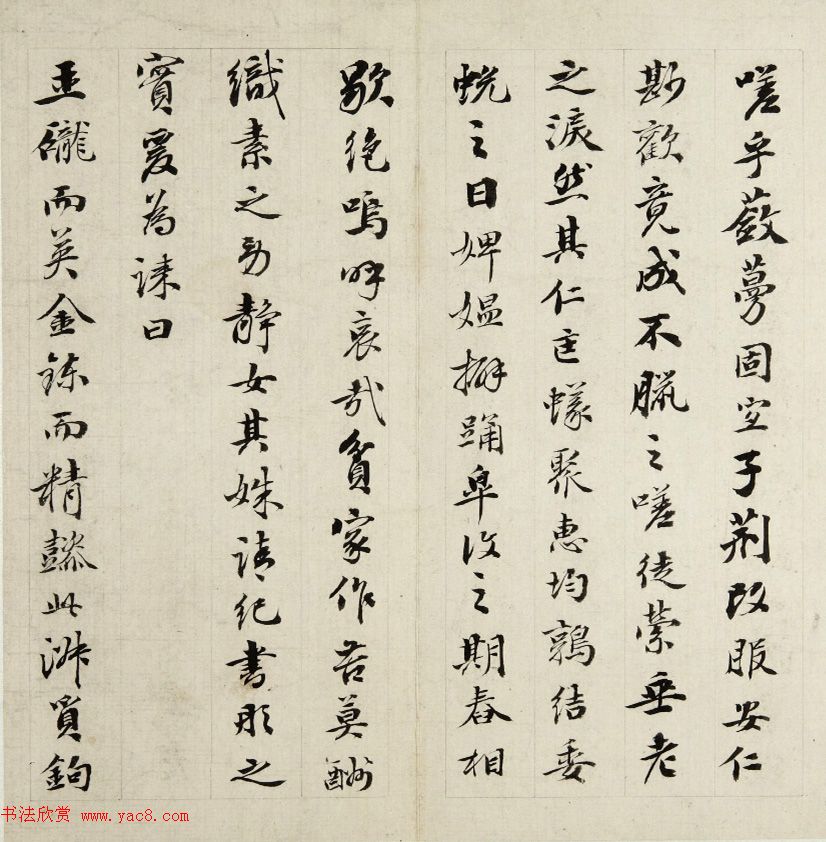 嗟乎蔹蔓固空子荆改服安仁
斟歡竟成不臘之嗟徒縈垂老
之淚然其仁笸蠓聚惠均鶉結委
蛻之日婢媼擗踊臯復之期舂相
歇絕嗚呼哀哉貧家作苦莫酬
織素之勤靜女其姝請紀書彤之
實爰為誄曰
玉礲而英金鍊而精懿此淋質鉤
书法欣赏 www.yac8.com